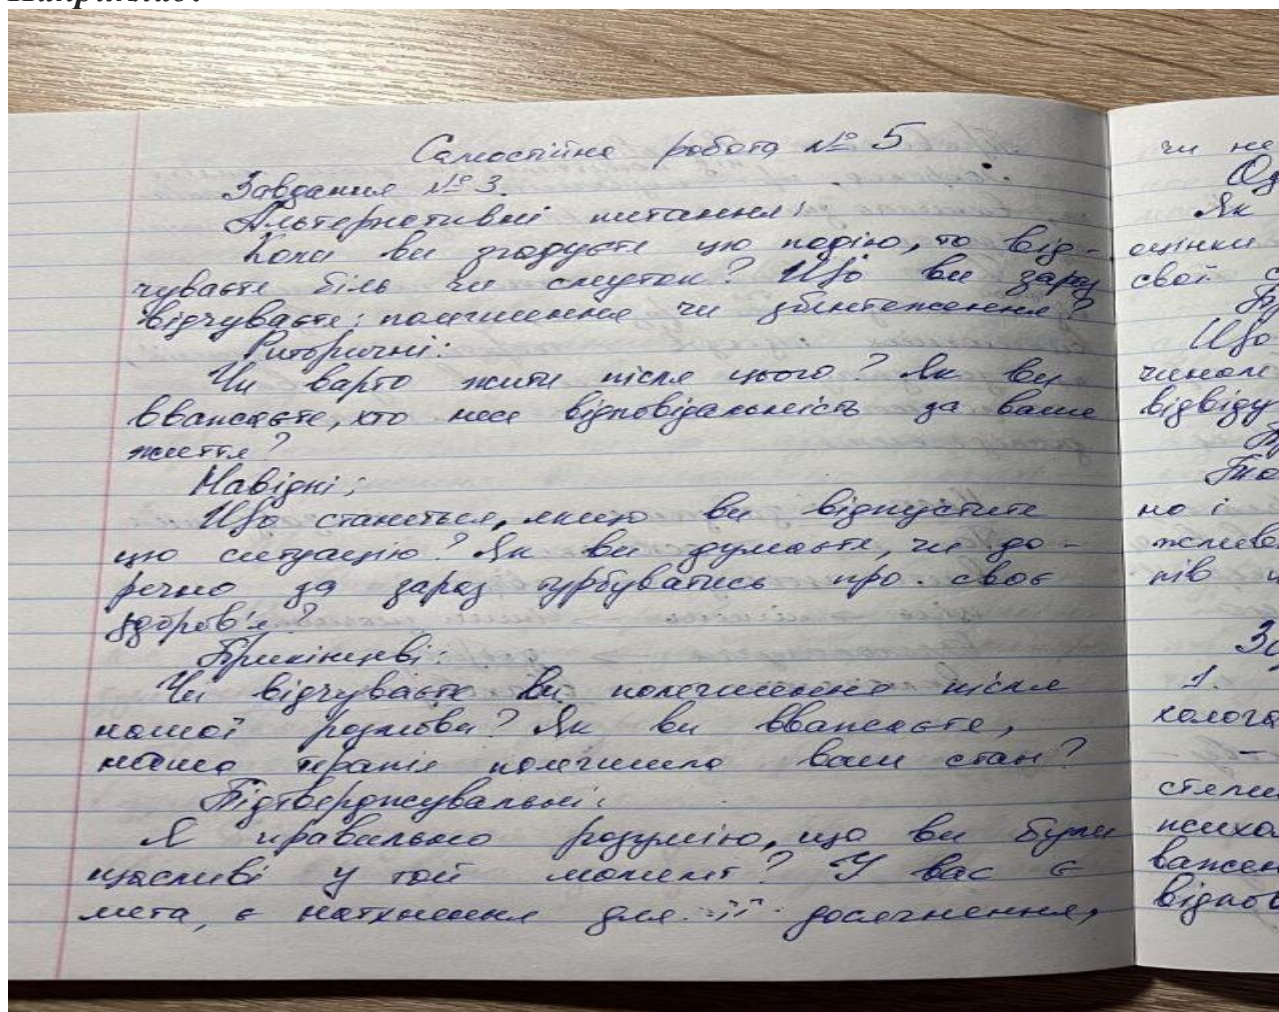 Наприклад:
Самостійна робота № 5
Завдання № 3.
Альтернативні питання:
Коли ви згадуєте цю подію, то від-
чуваєте біль чи смуток? Що ви зараз
відчуваєте: полегшення чи збентеження?
Риторичні:
Чи варто жити після цього? Як ви
вважаєте, хто несе відповідальність за ваше
життя?
Навідні:
Що станеться, якщо ви відпустите
цю ситуацію? Як ви думаєте, чи до-
речно за зараз турбуватись про своє
здоров'я?
Прикінцеві:
Чи відчуваєте ви полегшення після
нашої розмови? Як ви вважаєте,
наша терапія полегшила ваш стан?
Підтверджувальні:
Я правильно розумію, що ви були
щасливі у той момент? У вас є
мета, є натхнення для її досягнення,
чи не
Як
оцінки
свої
Що
чином
відвіду
но і
пів
1.
холога
-
психо